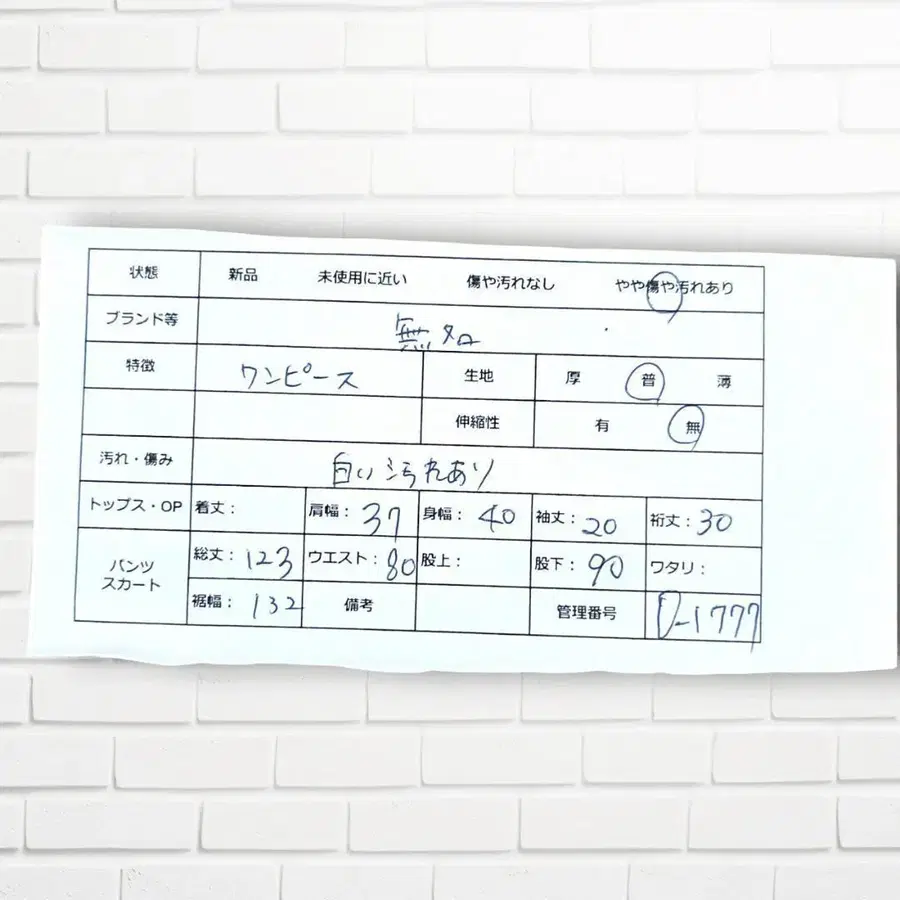 状態 新品 未使用に近い 傷や汚れなし やや傷や汚れあり
ブランド等 無名
特徴 ワンピース 生地 厚 普 薄
伸縮性 有 無
汚れ・傷み 白い汚れあり
トップス・OP 着丈: 肩幅: 37 身幅: 40 袖丈: 20 裄丈: 30
パンツ
スカート
総丈: 123 ウエスト: 80 股上: 股下: 90 ワタリ:
裾幅: 132 備考 管理番号 D-1777